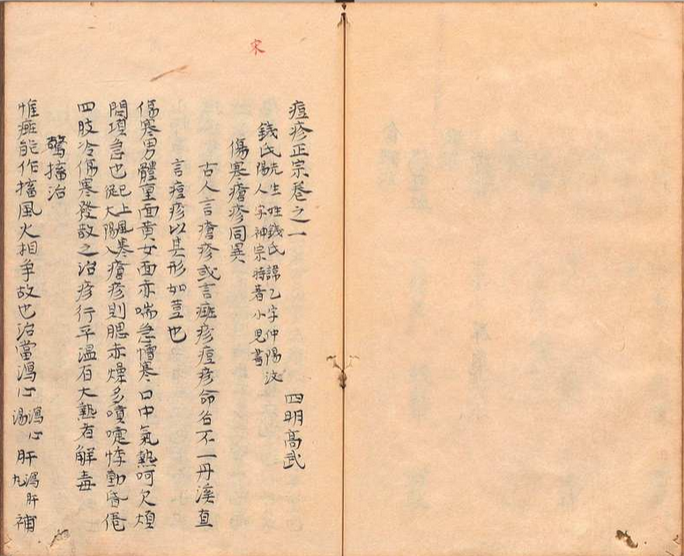 宋
痘疹正宗卷之一
四明高武
錢氏先生姓錢氏諱乙字仲陽汶
陽人字神宗時著小兒書
傷寒瘡疹同異
古人言瘡疹或言斑疹痘疹命名不一丹溪直
言痘疹以其形如荳也
傷寒男體重面黄女面赤喘急憎寒口中氣熱呵欠煩
悶項急也從太陽上風寒瘡疹則腮赤燥多噴嚏悸動昏倦
四肢冷傷寒發散之治疹行平温有大熱者解毒
驚搐治
惟斑能作搐風火相争故也治當瀉心瀉心湯肝瀉肝丸補